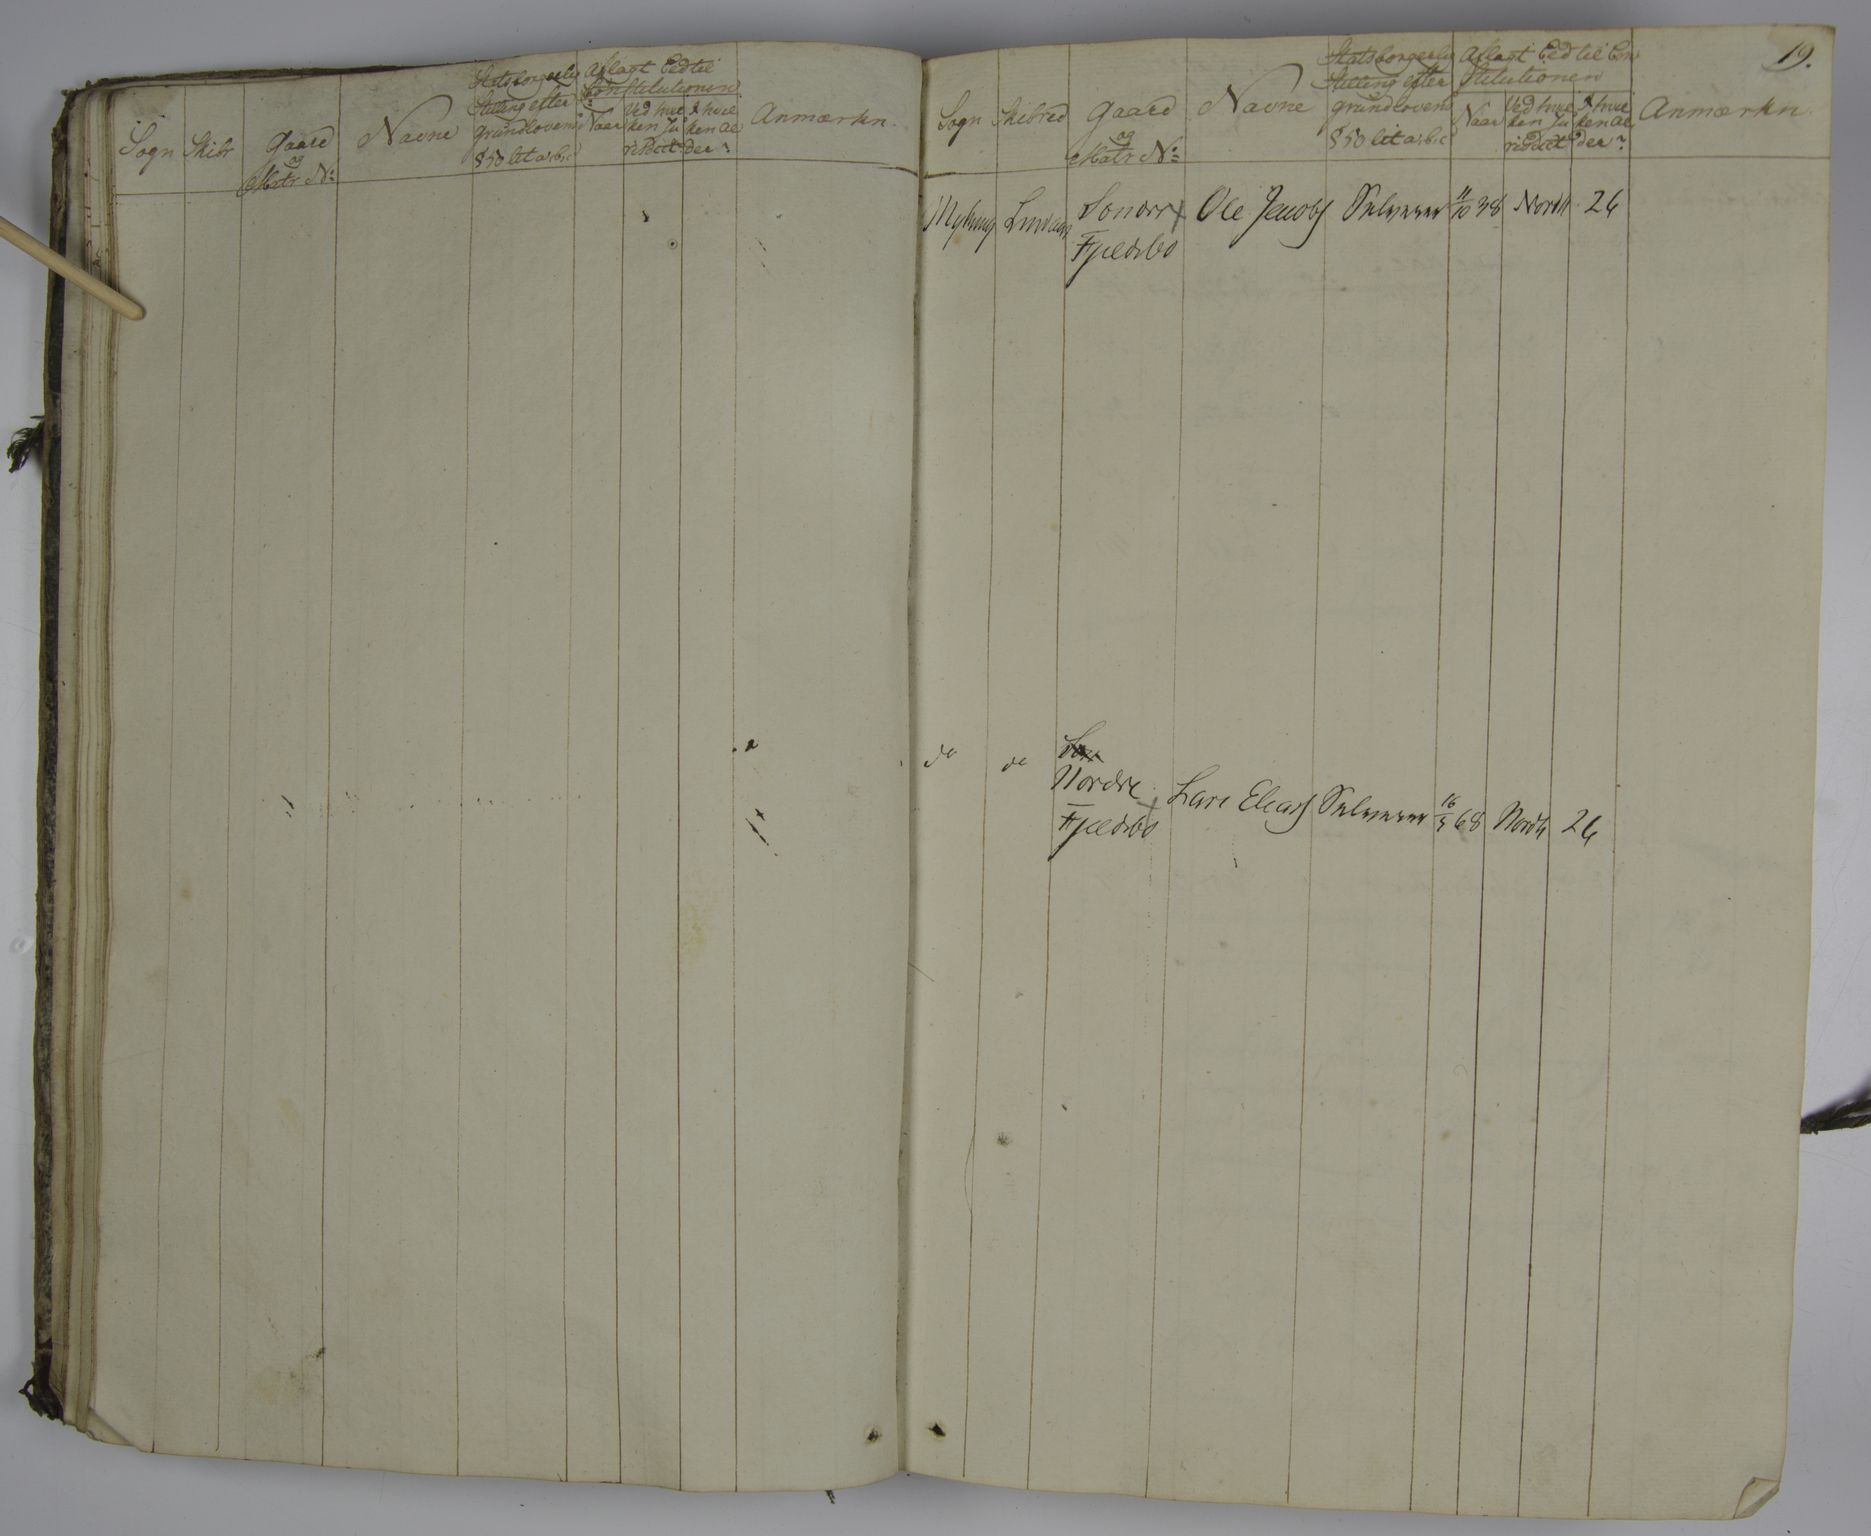 Sogn Skibr Gaard og Matr No: Navne Statsborgerlig Stilling efter grundlovens § 50 lit a, b, c Aflagt Eed til Constitutionen Naar Ved hvilken Jurisdict I hvilken Alder? Anmærkn.
19.
Sogn Skibred Gaard og Matr No: Navne Statsborgerlig Stilling efter grundlovens § 50 lit a, b, c Aflagt Eed til Constitutionen Naar Ved hvilken Jurisdict I hvilken Alder? Anmærkn.
Myking Lindaas Ole Jacobs Selveier 11/10 38 Nordh 26
Fjeldsbø
do do
Nordre
Fjeldsbø Lars Elias Selveier 16/5 68 Nordh 26